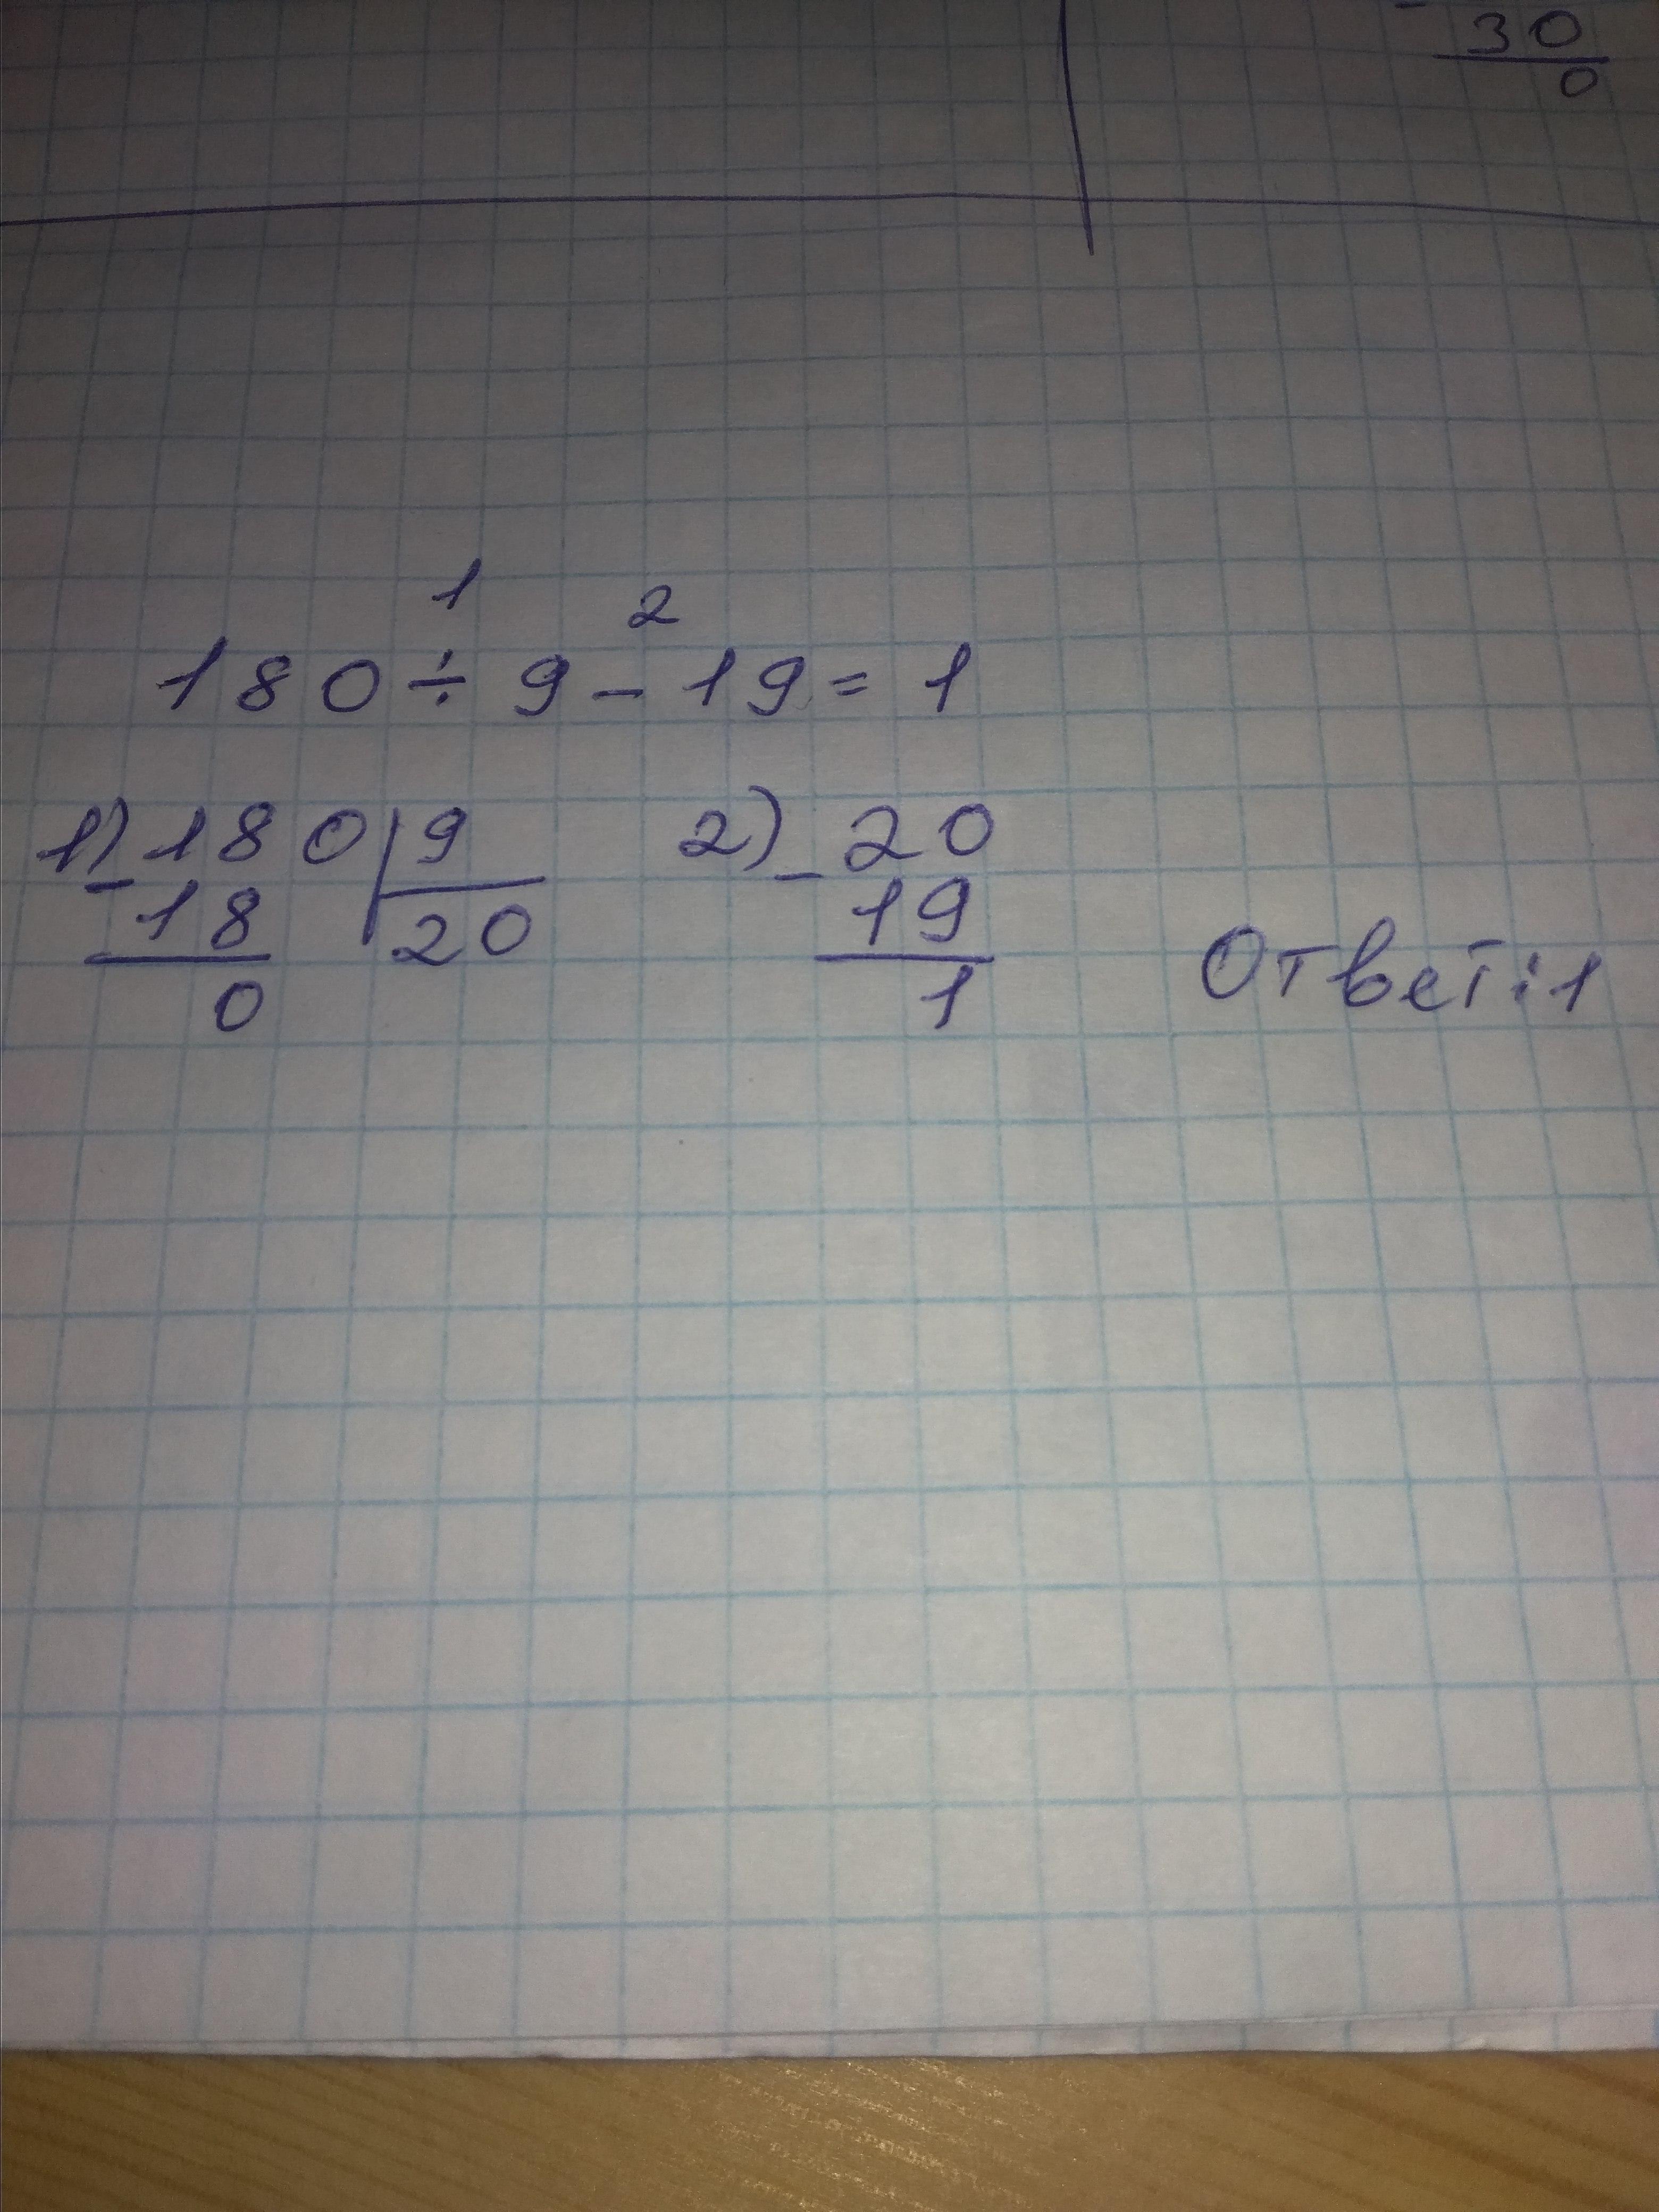 30
0
1 2
180 ÷ 9 - 19 = 1
1) 180 | 9 2) 20
- 18 20 - 19
0 1
Ответ: 1